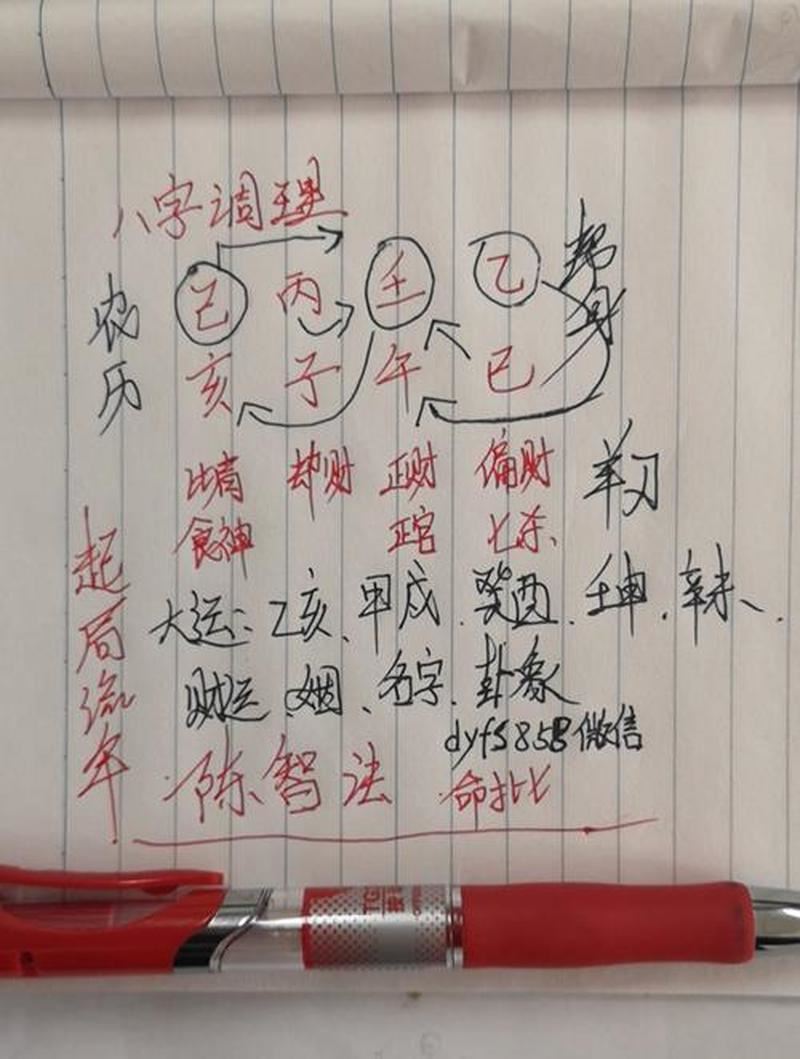 八字调理
己 丙 壬 乙 帮身
农历
亥 子 午 巳
比肩 却财 正财 偏财 羊刃
食神 正官 七杀
起局流年
大运:乙亥、甲戌.癸酉.壬申.辛未、.
财运、姻、名字.卦象
dyf5858微信
陈智法 命批